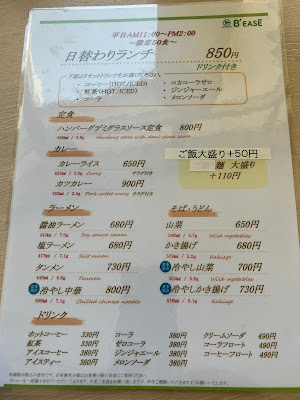 B'EASE
平日AM11:00～PM2:00
～限定50食～
日替わりランチ 850円
ドリンク付き
・コーヒー(HOT/ICED)
・紅茶(HOT/ICED)
・コーラ
・コカコーラゼロ
・ジンジャーエール
・メロンソーダ
定食
ハンバーグデミグラスソース定食 800円
カレー
カレーライス 650円
Curry サラダ付き
カツカレー 900円
Pork cutlet curry サラダ付き
ご飯大盛り+50円
麺 大盛り
+110円
ラーメン
醤油ラーメン 680円
Soy sauce ramen
塩ラーメン 680円
Salt ramen
タンメン 730円
Tanmen
冷やし中華 800円
Chilled chinese noodles
そば・うどん
山菜 650円
Wild vegetables
かき揚げ 680円
Kakiage
冷やし山菜 700円
Wild vegetables
冷やしかき揚げ 730円
Kakiage
ドリンク
ホットコーヒー 330円
紅茶 330円
アイスコーヒー 380円
アイスティー 380円
コーラ 380円
ゼロコーラ 380円
ジンジャエール 380円
メロンソーダ 380円
クリームソーダ 490円
コーラフロート 490円
コーヒーフロート 490円